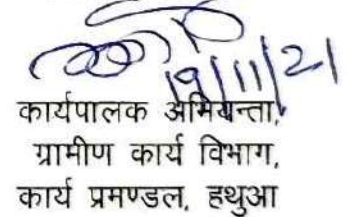 19/11/21
कार्यपालक अभियन्ता,
ग्रामीण कार्य विभाग,
कार्य प्रमण्डल, हथुआ